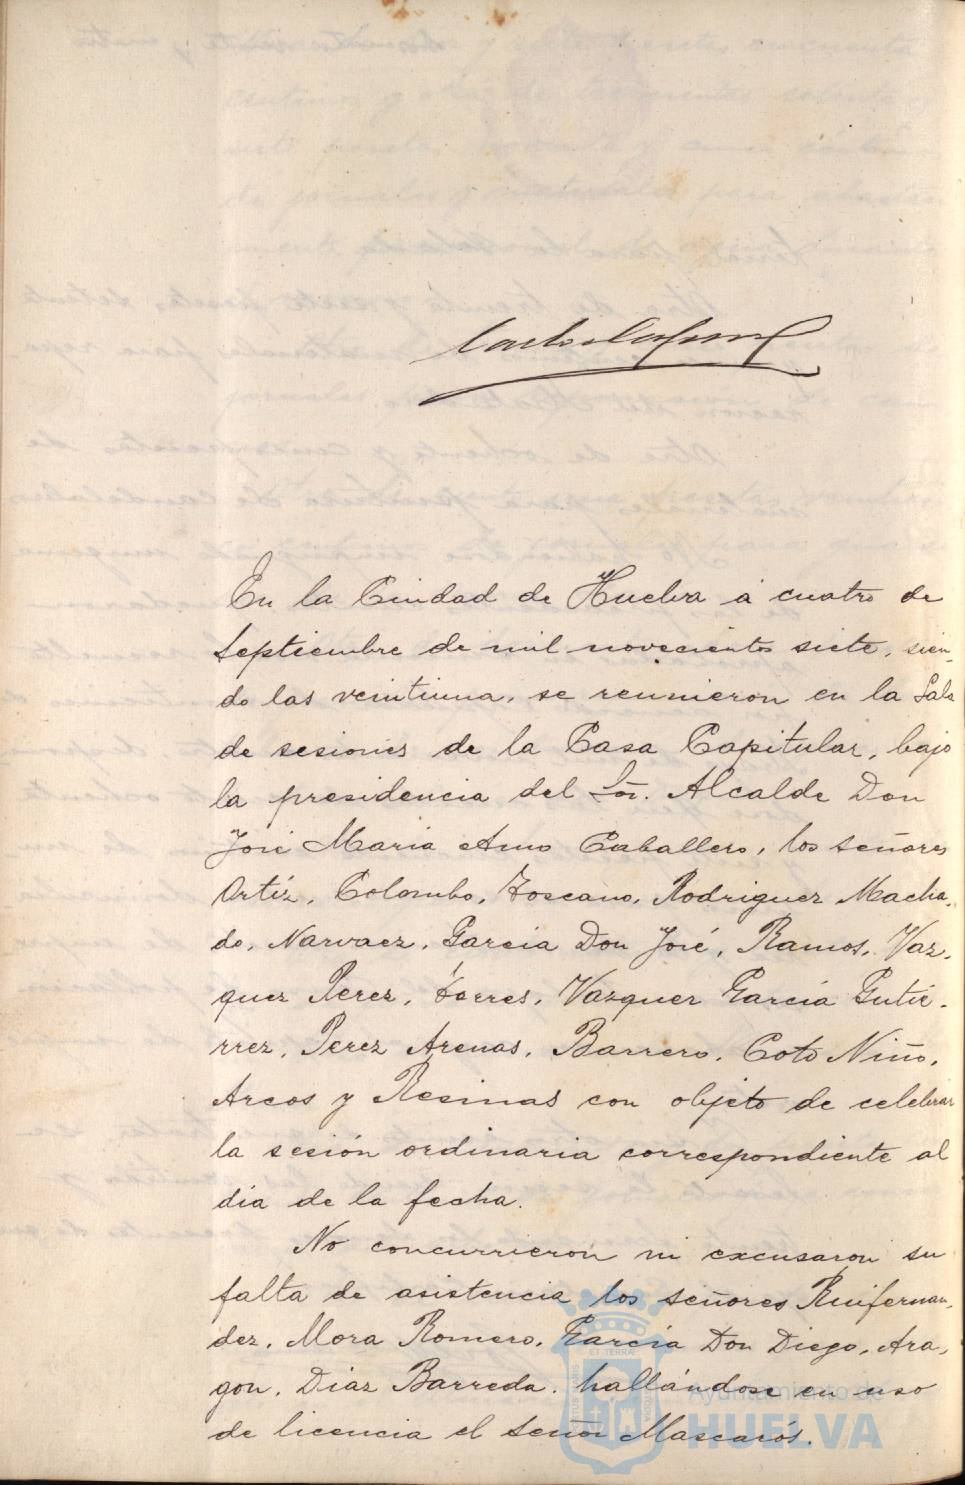 En la Ciudad de Huelva á cuatro de
Septiembre de mil novecientos siete, sien-
do las veintiuna, se reunieron en la Sala
de sesiones de la Casa Capitular, bajo
la presidencia del Sor. Alcalde Don
José Maria Amo Caballero, los señores
Ortíz, Colombo, Toscano, Rodriguez Macha-
do, Narvaez, García Don José, Ramos, Vaz-
quez Perez, Torres, Vazquez García Gutié-
rrez, Perez Arenas, Barrero, Coto Niño,
Arcos y Resinas con objeto de celebrar
la sesión ordinaria correspondiente al
dia de la fecha.
No concurrieron ni excusaron su
falta de asistencia los señores Ruifernan-
dez, Mora Romero, García Don Diego, Ara-
gon, Diaz Barreda, hallándose en uso
de licencia el señor Mascarós.
Ayuntamiento de
HUELVA